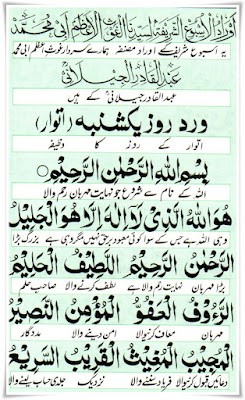 اوراد الاسبوع الشریفة لسیدنا الغوث الاعظم ابی محمد
یہ اسبوع شریف کے اوراد مصنفہ ہمارے سردار غوث اعظم ابی محمد
عبد القادر الجیلانی
عبد القادر جیلانی کے ہیں
ورد روز یکشنبہ (اتوار)
اتوار کے روز کا وظیفہ
بِسْمِ اللهِ الرَّحْمٰنِ الرَّحِيْمِ
اللہ کے نام سے شروع جو نہایت مہربان رحم والا
هُوَ اللهُ الَّذِيْ لَا اِلٰهَ اِلَّا هُوَ الْجَلِيْلُ
وہی اللہ ہے جس کے سوا کوئی معبود برحق نہیں مگر وہی ہے بزرگ بڑا
الرَّحْمٰنُ الرَّحِيْمُ اللَّطِيْفُ الْحَلِيْمُ
بڑا مہربان نہایت رحم والا ہے لطف کرنے والا صاحب حلم
الرَّءُوْفُ الْعَفُوُّ الْمُؤْمِنُ النَّصِيْرُ
مہربان معاف کرنیوالا امن دینے والا مددگار
الْمُجِيْبُ الْمُغِيْثُ الْقَرِيْبُ السَّرِيْعُ
دعائیں قبول کرنیوالا فریاد سننے والا نزدیک جلدی حساب لینے والا